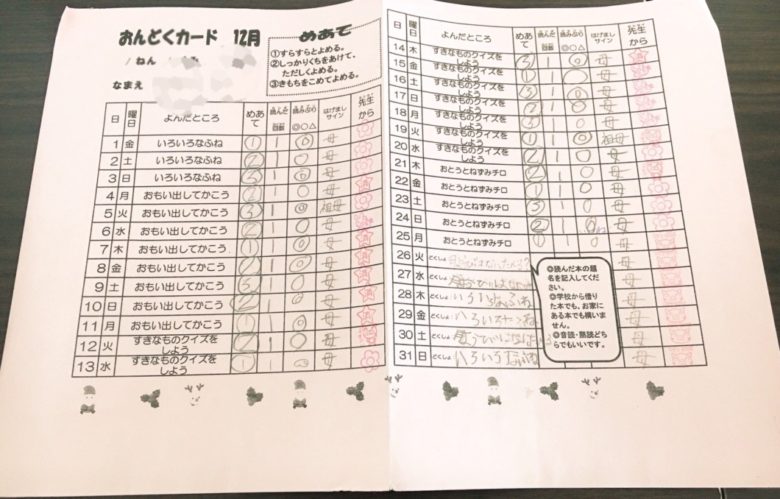 おんどくカード 12月
ねん
なまえ
めあて
①すらすらとよめる。
②しっかりくちをあけて、
ただしくよめる。
③きもちをこめてよめる。
日 曜日 よんだところ めあて 読んだ回数 読みぶり◎○△ はげましサイン 先生から
1 金 いろいろなふね 1 母
2 土 いろいろなふね 1 母
3 日 いろいろなふね 1 母
4 月 おもい出してかこう 1 母
5 火 おもい出してかこう 1 祖母
6 水 おもい出してかこう 1 母
7 木 おもい出してかこう 1 母
8 金 おもい出してかこう 1 母
9 土 おもい出してかこう 1 母
10 日 おもい出してかこう 1 母
11 月 おもい出してかこう 1 母
12 火 すきなものクイズをしよう 1 母
13 水 すきなものクイズをしよう 1 母
日 曜日 よんだところ めあて 読んだ回数 読みぶり◎○△ はげましサイン 先生から
14 木 すきなものクイズをしよう 1 母
15 金 すきなものクイズをしよう 1 母
16 土 すきなものクイズをしよう 1 母
17 日 すきなものクイズをしよう 1 母
18 月 すきなものクイズをしよう 1 母
19 火 すきなものクイズをしよう 1 祖母
20 水 すきなものクイズをしよう 1 母
21 木 おとうとねずみチロ 1 母
22 金 おとうとねずみチロ 1 母
23 土 おとうとねずみチロ 1 母
24 日 おとうとねずみチロ 1 母
25 月 おとうとねずみチロ 1 母
26 火 どくしょ
27 水 どくしょ 母
28 木 どくしょ いろいろなふね 母
29 金 どくしょ 母
30 土 どくしょ 母
31 日 どくしょ いろいろなふね 母
◎読んだ本の題
名を記入してくだ
さい。
◎学校から借り
た本でも、お家に
ある本でも構いま
せん。
◎音読・黙読どち
らでもいいです。